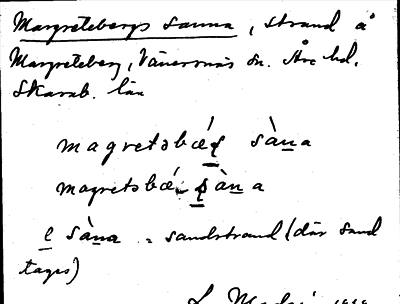 Margretebergs sanna, strand å
Margreteberg, Vänersnäs sn. Åse hd,
Skarab. län
magretəbǽʂ sàna
magretəbǽ ʂàna
e sàna = sandstrand (där sand
tages)